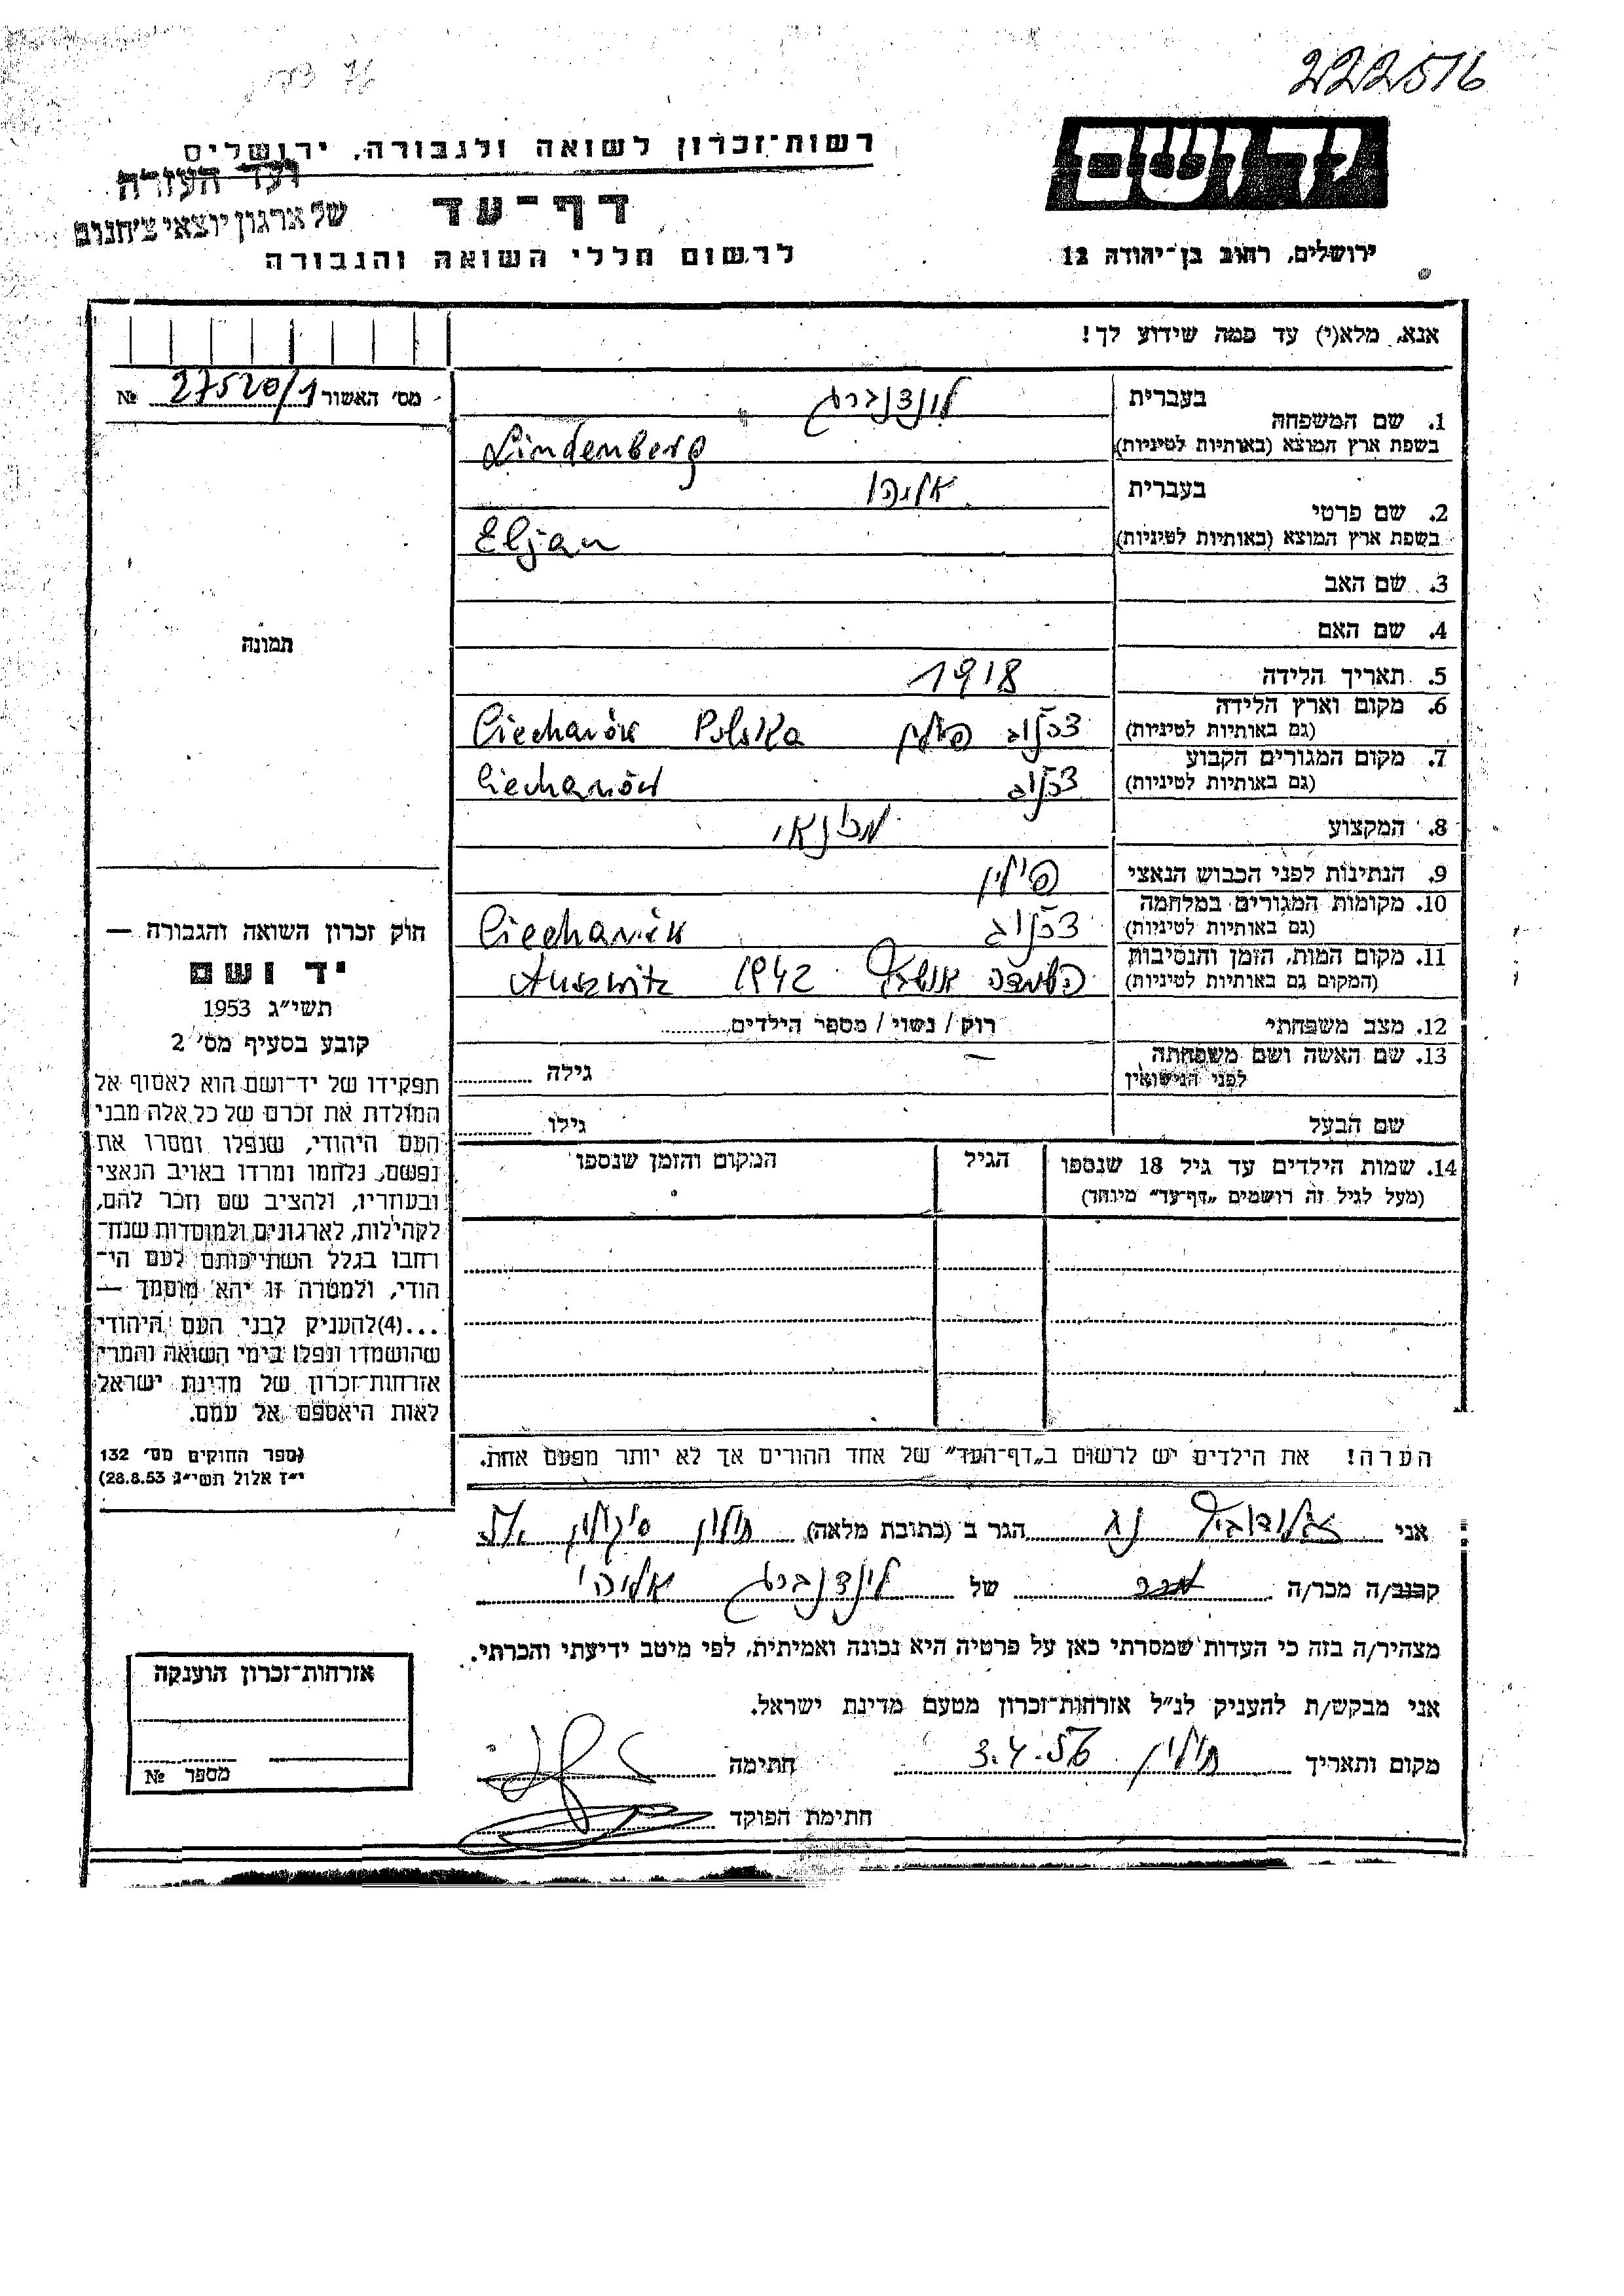 222516
יד ושם
רשות־זכרון לשואה ולגבורה, ירושלים
ועד העזרה
של ארגון יוצאי צ'חנוב
דף־עד
ירושלים, רחוב בן־יהודה 12
לרשום חללי השואה והגבורה
אנא, מלא(י) עד כמה שידוע לך!
מס׳ האשור 27520/1 №
1. שם המשפחה
בעברית לינדנברג
בשפת ארץ המוצא (באותיות לטיניות) Lindenberg
2. שם פרטי
בעברית אליהו
בשפת ארץ המוצא (באותיות לטיניות) Eljau
3. שם האב
4. שם האם
5. תאריך הלידה 1918
6. מקום וארץ הלידה
(גם באותיות לטיניות) צכנוב פולין Polska Ciechanów
7. מקום המגורים הקבוע
(גם באותיות לטיניות) צכנוב Ciechanów
8. המקצוע מכונאי
9. הנתינות לפני הכבוש הנאצי פולין
10. מקומות המגורים במלחמה
(גם באותיות לטיניות) צכנוב Ciechanów
11. מקום המות, הזמן והנסיבות
(המקום גם באותיות לטיניות) 1942 Auszwitz
12. מצב משפחתי רוק / נשוי / מספר הילדים
13. שם האשה ושם משפחתה
לפני הנישואין גילה
שם הבעל גילו
14. שמות הילדים עד גיל 18 שנספו
(מעל לגיל זה רושמים „דף־עד” מיוחד)
הגיל
המקום והזמן שנספו
הערה! את הילדים יש לרשום ב„דף־העד” של אחד ההורים אך לא יותר מפעם אחת.
תמונה
חוק זכרון השואה והגבורה —
יד ושם
תשי״ג 1953
קובע בסעיף מס׳ 2
תפקידו של יד־ושם הוא לאסוף אל
המולדת את זכרם של כל אלה מבני
העם היהודי, שנפלו ומסרו את
נפשם, נלחמו ומרדו באויב הנאצי
ובעוזריו, ולהציב שם וזכר להם,
לקהילות, לארגונים ולמוסדות שנח־
רחבו בגלל השתייכותם לעם הי־
הודי, ולמטרה זו יהא מוסמך —
...(4)להעניק לבני העם היהודי
שהושמדו ונפלו בימי השואה והמרי
אזרחות־זכרון של מדינת ישראל
לאות היאספם אל עמם.
(ספר החוקים מס׳ 132
י״ז אלול תשי״ג 28.8.53)
אני הגר ב (כתובת מלאה) חולון
קרוב/ה מכר/ה מכר של לינדנברג אליהו
מצהיר/ה בזה כי העדות שמסרתי כאן על פרטיה היא נכונה ואמיתית, לפי מיטב ידיעתי והכרתי.
אני מבקש/ת להעניק לנ״ל אזרחות־זכרון מטעם מדינת ישראל.
מקום ותאריך חולון 3.4.56 חתימה
חתימת הפוקד
אזרחות־זכרון הוענקה
מספר №